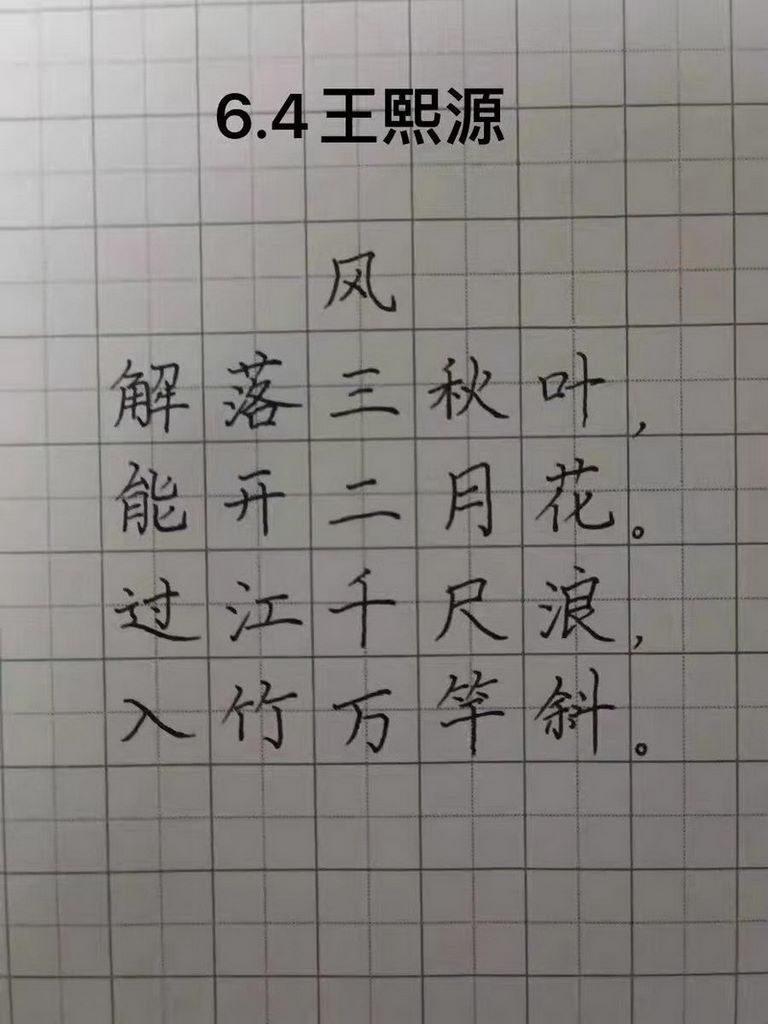 6.4王熙源
风
解落三秋叶,
能开二月花。
过江千尺浪,
入竹万竿斜。